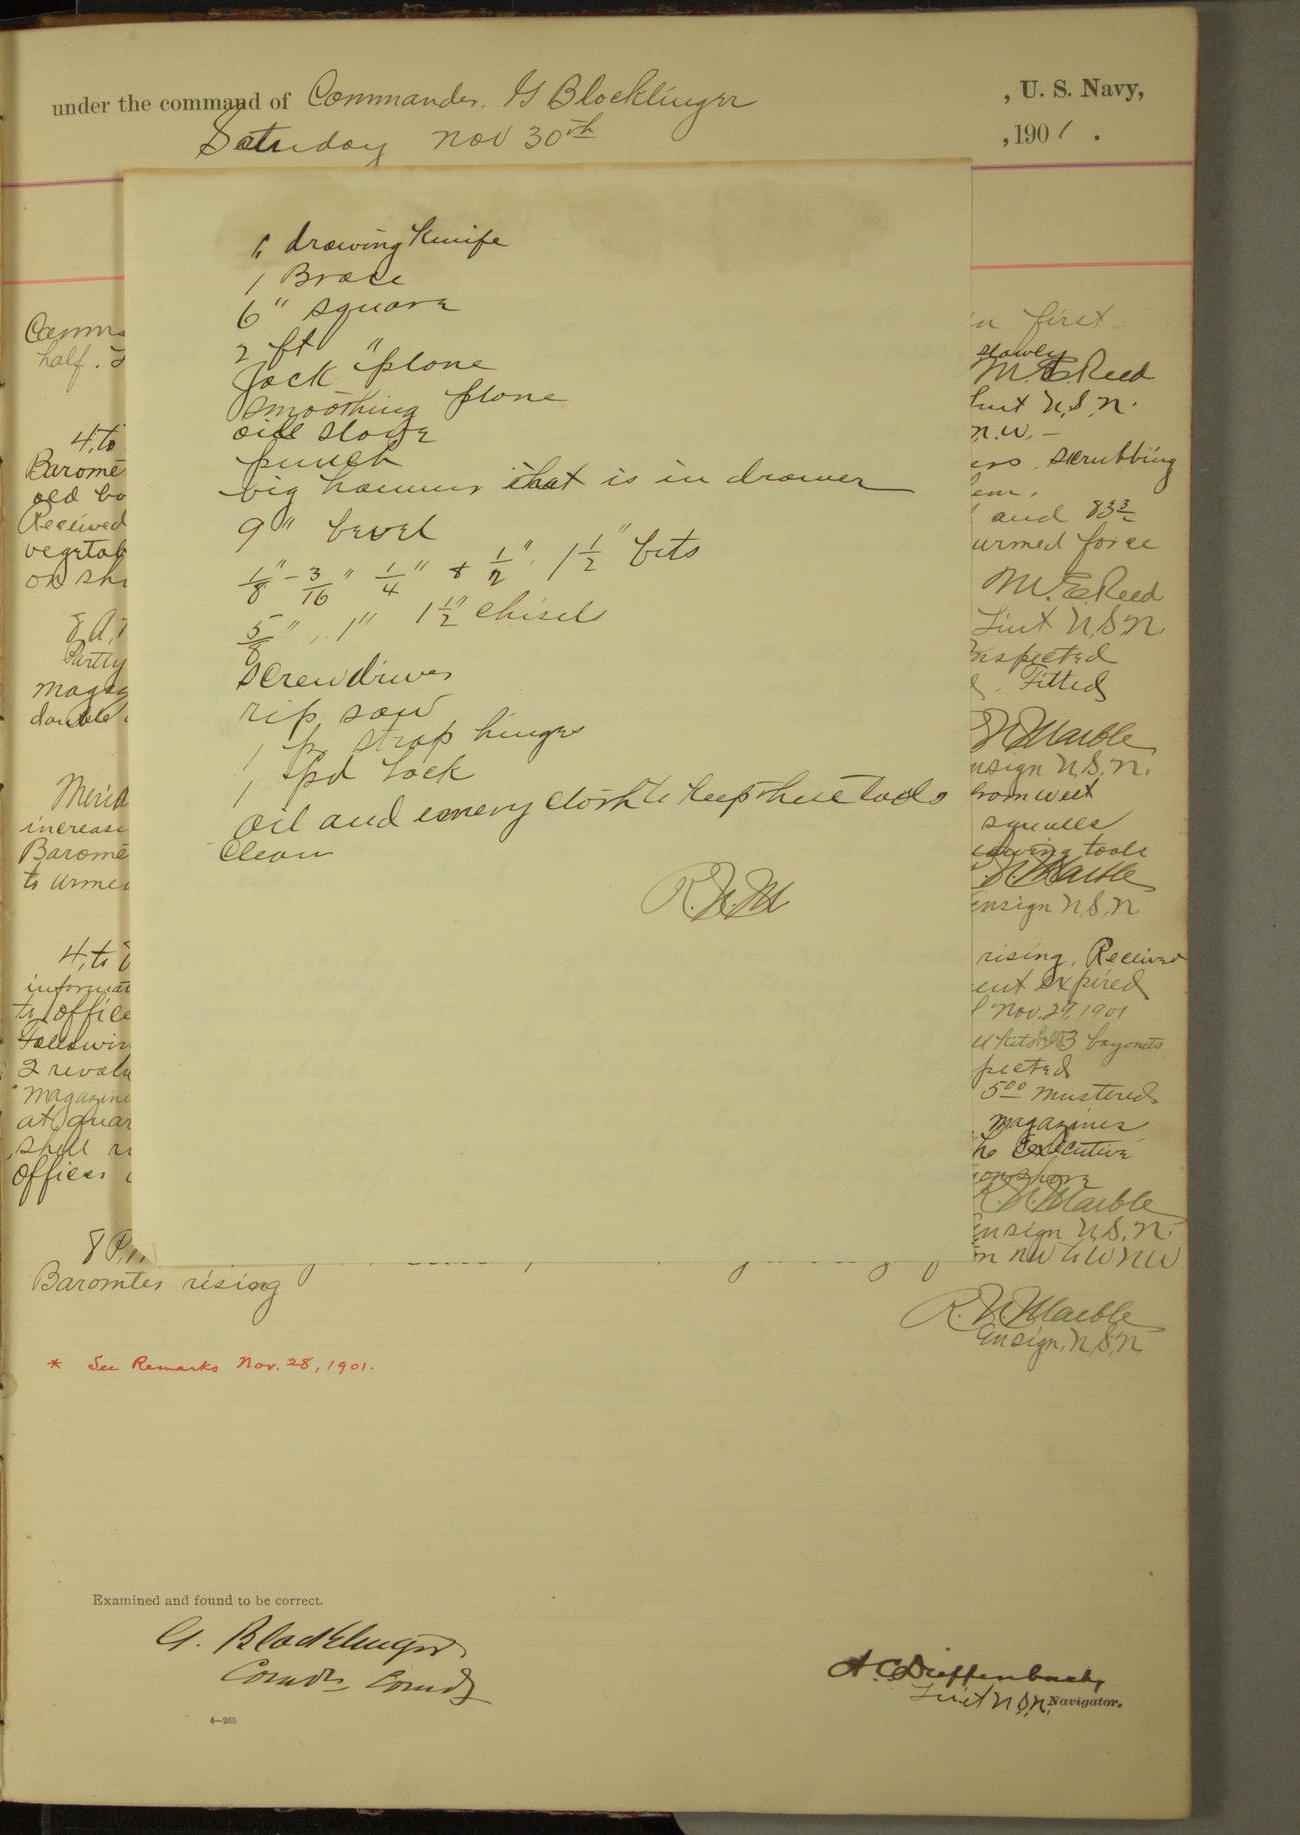 under the command of Commander. G Blocklinger , U. S. Navy,
Saturday Nov 30th ,1901 .
6 drawing knife
1 Brace
6" square
2 ft "
Jack plane
smoothing plane
oil stone
punch
big hammer that is in drawer
9" bevel
1/8" - 3/16" 1/4" & 1/2" 1 1/2" bits
5/8", 1" 1 1/2" chisels
screwdriver
rip saw
1 pr strap hinges
1 pd lock
oil and emery cloth to keep these tools
clean
R.W.M
Comm
half.
4, to
Barome
old bo
Received
vegetab
on sh
8 A,
Partly
magaz
double
Merid
increas
Barome
to armed
4, to 8
informat
to office
Followin
2 revolv
magazine
at quar
shell r
officer
8 P.
in first
slowly
M. E. Reed
Lieut U.S.N.
N.W. –
ers, scrubbing
em.
and 83 3/2
armed force
M. E. Reed
Lieut U.S.N.
Inspected
d. Fitted
W Marble
nsign U.S.N.
from west
squalls
tools
W Marble
Ensign U.S.N
rising, Received
ent expired
Nov. 29, 1901
3 bayonets
pected
5 00 mustered
magazines
he Executive
on shore
R. W. Marble
Ensign U.S.N.
m NW to WNW
Baromter rising
R. W. Marble
Ensign, U.S.N.
* See Remarks Nov. 28, 1901.
Examined and found to be correct.
G. Blocklinger
Comdr Comdg
A C Dieffenbach,
Lieut U.S.N. Navigator.
4—265